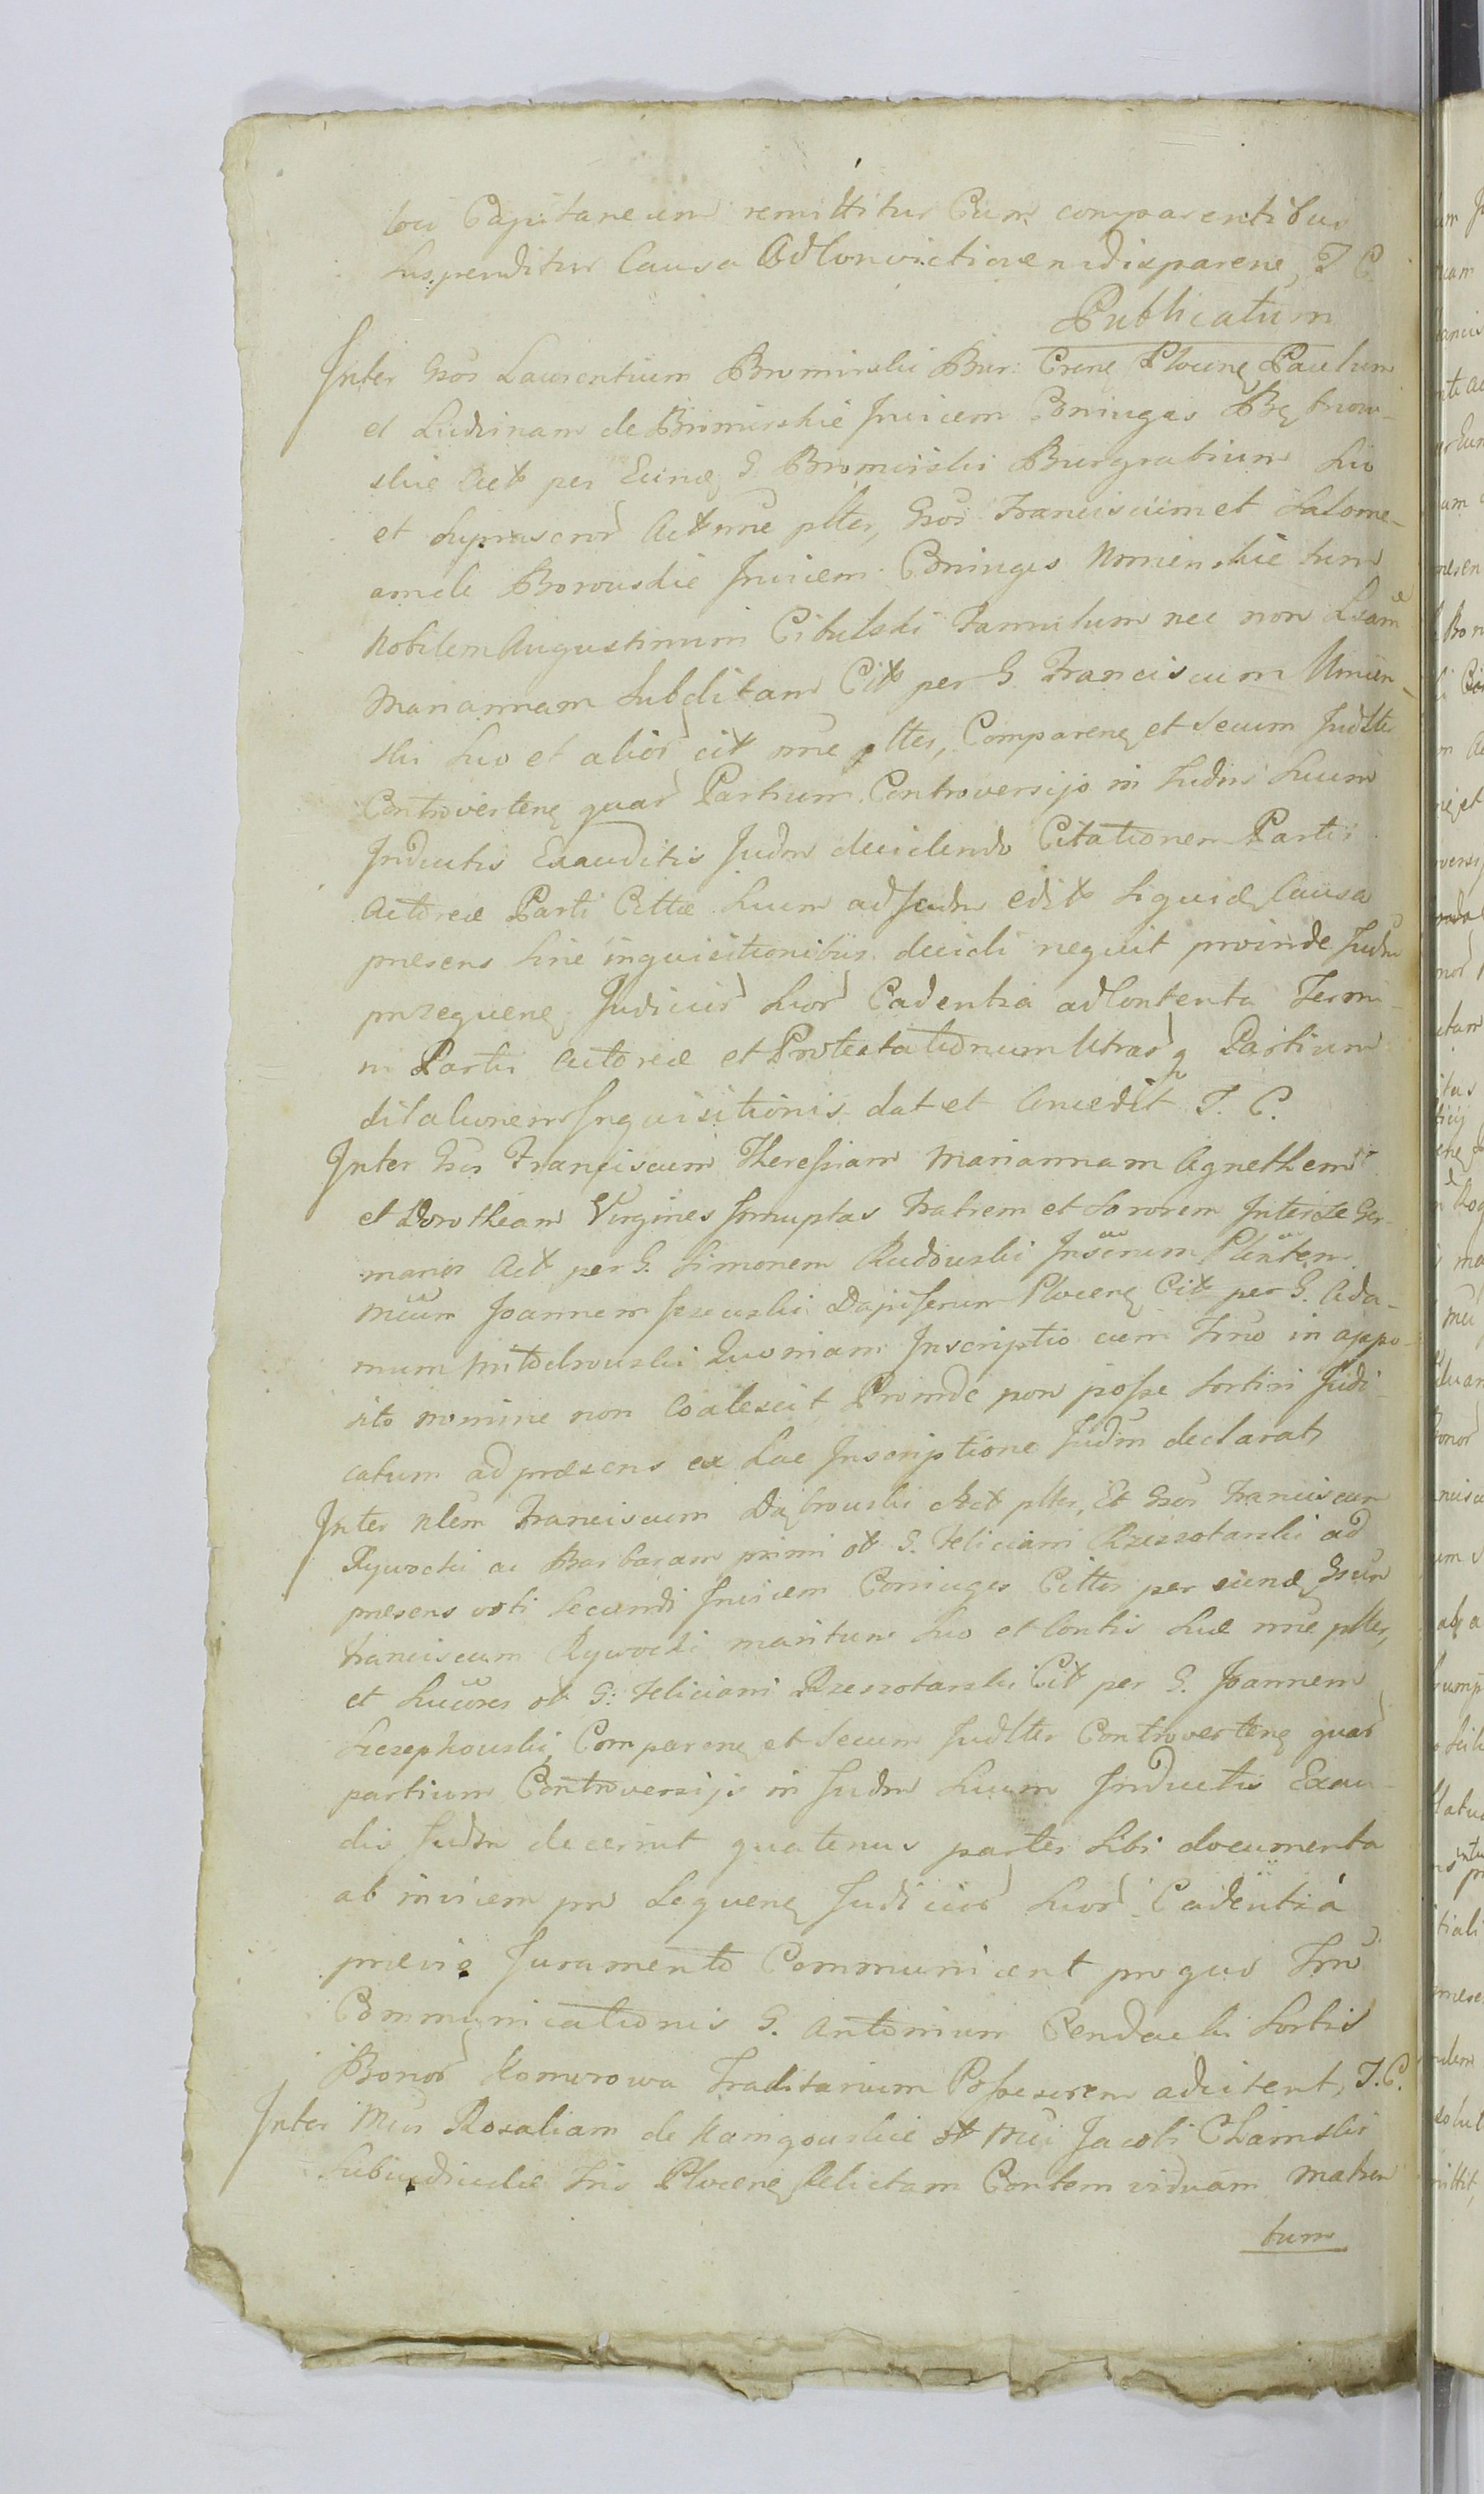 loci Capitaneum remittitur Cum comparentibus
Suspenditur Causa Ad Convictionem disparen, T. C.
Publicatum
Inter Gsos Laurentium Bromirski Bur: Cren Plocen Paulum
et Ludvinam de Bromirskie Invicem Coniuges Bętkow-
skie Act per Eund G. Bromirski Burgrabium Suo
et suprascror Act nne plter, Gsos Franciscum et Salome-
am de Borouskie Invicem Coniuges Umienskie tum
Nobilem Augustinum Cibulski Famulum nec non Lsam
Mariannam Subditam Cit per G. Franciscum Umien-
ski Suo et alior cit nne plter, Comparen et secum Judlter
Controverten quar Partium Controversijs in Judm Suum
Inductis Exauditis Judm decidendo Citationem Partis
Actoreæ Parti Cittæ Suum ad Judm edit Siquid Causa
præsens sine inquisitionibus decidi nequit proinde Judm
pro sequen Judicior Suor Cadentia ad Contenta Termi-
ni Partis Actoreæ et Protestationum Utrarq Partium
dilationem Inquisitionis dat et Concedit T. C.
Inter Gsos Franciscum Theressiam Mariannam Agnethem
et Dorotheam Virgines Innuptas Fratrem et Sororem Inter se Ger-
manos Act per G. Simonem Rudouski Plenten
Mcum Joannem Dapiferum Plocen Cit per G. Ada-
mum Quoniam Inscriptio cum Trno in appo-
sito nomine non Coalescit Proinde non posse sortiri Judi-
catum ad præsens ex Lae Inscriptione Judm declarat,
Inter Nlem Franciscum Dąbrouski Act plter, Et Gsos Franciscum
Rywocki ac Barbaram primi ot G. Feliciani Rzeszotarski ad
præsens voti secundi Invicem Coniuges Cittos per eund Gsum
Franciscum Rywocki maritum Suo et Contis Suæ nne plter,
et Succores ot G: Feliciani Rzeszotarski Cit per G. Joannem
Szczepkouski, Comparen et secum Judlter Controverten quar
partium Controversijs in Judm Suum Inductis Exau-
dis Judm decernit quatenus partes sibi documenta
ab invicem pro sequen Judicior Suor Cadentia
prævio Juramento Communicent pro quo Trno
Communicationis G. Antonium Cendacki Sortis
Bonor Komorowa Traditarium Possesorem adcitent, T. C.
Inter Mcos Rosaliam de Karngouskie ot Mci Jacobi Chamski
Subiudicis Tris Plocen Relictam Contem viduam Matrem
tum